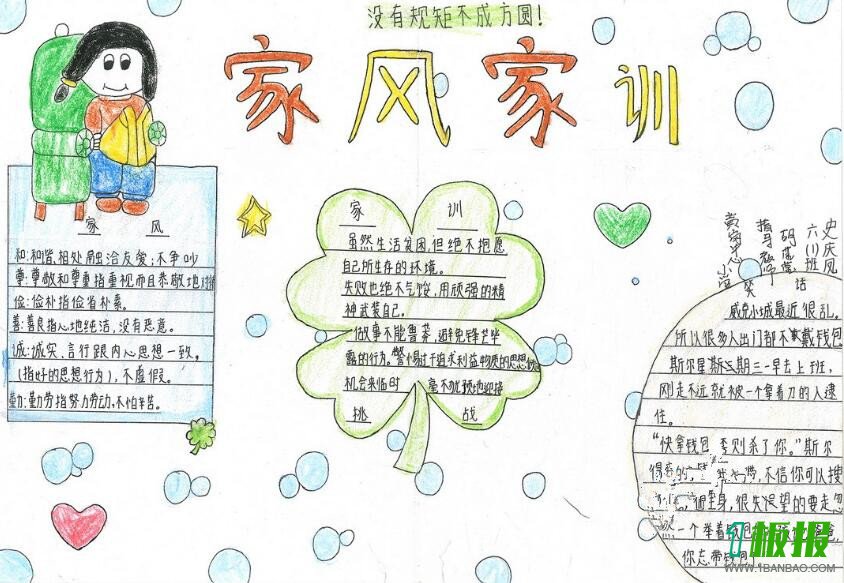 没有规矩不成方圆!
家风家训
家 风
和:和谐,相处融洽友爱;不争吵
尊:尊敬和尊重指重视而且恭敬地对待
俭:俭朴指俭省朴素。
善:善良指心地纯洁,没有恶意。
诚:诚实,言行跟内心思想一致。
(指好的思想行为),不虚假。
勤:勤劳指努力劳动,不怕辛苦。
家 训
虽然生活贫困,但绝不抱愿
自己所生存的环境。
失败也绝不气馁,用顽强的精
神武装自己。
做事不能鲁莽,避免锋芒毕
露的行为。警惕过于追求利益物质的思想
机会来临时 毫不犹预地迎接
挑 战
史庆凤
六(1)班
指导教师
笑 话
威克小城最近很乱。
所以很多人出门都不敢戴钱包
斯尔星期三一早去上班,
刚走不远就被一个拿着刀的人逮
住。
“快拿钱包,否则杀了你。”斯尔
不信你可以搜
很失望的要走
一个举着钱包
你忘带钱包
1板报
WWW.1BANBAO.COM